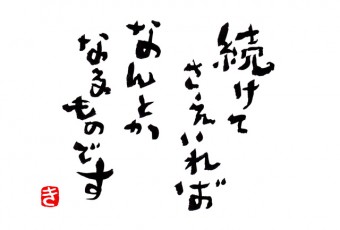 続けて
さえいれば
なんとか
なるものです
き